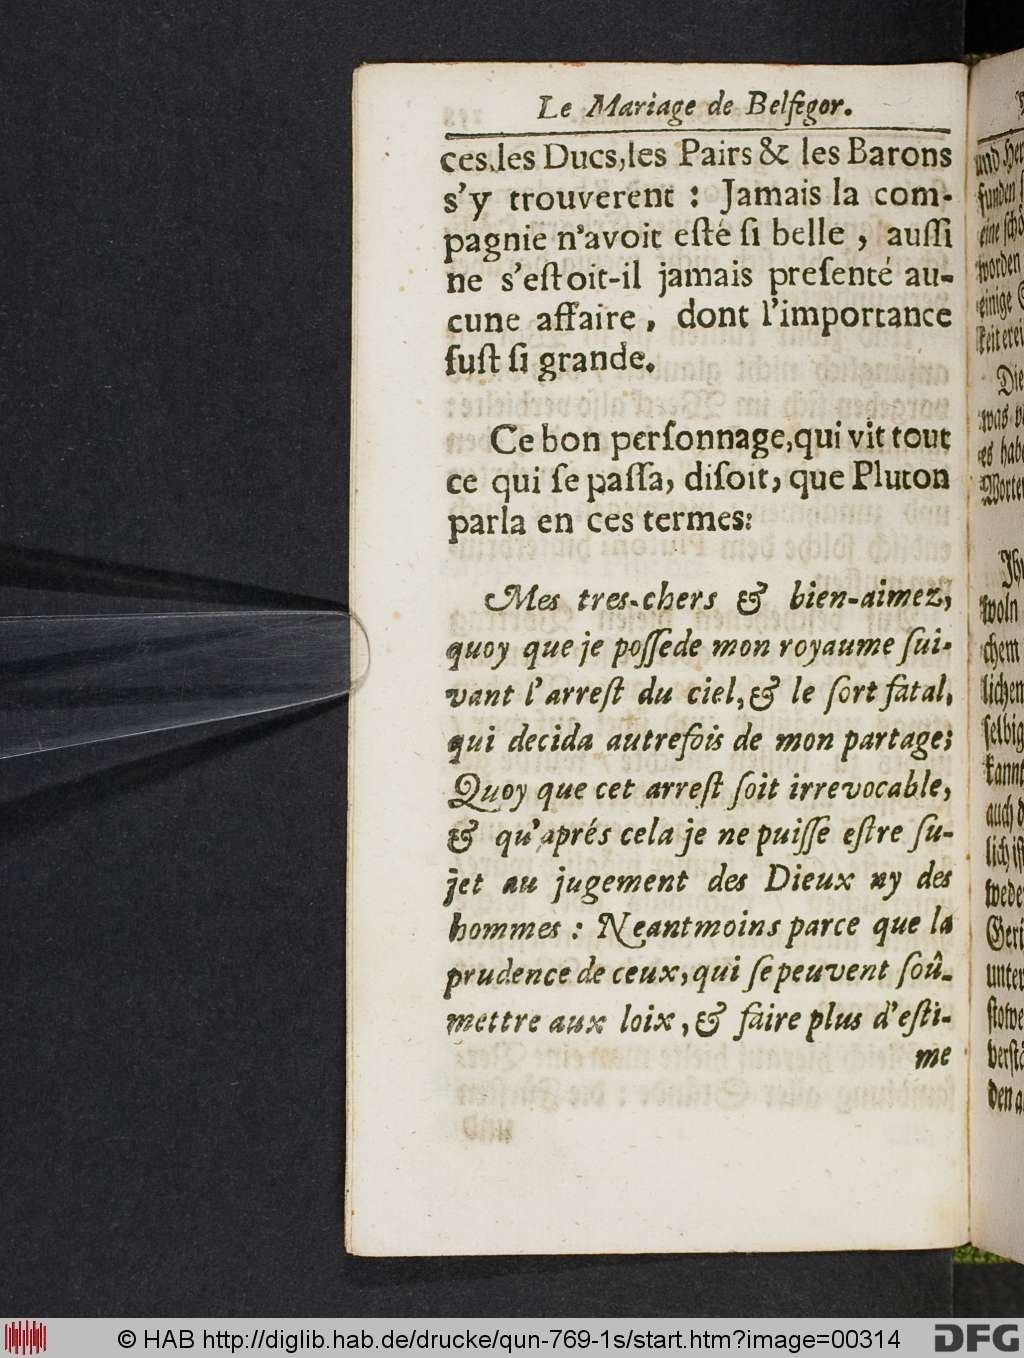 Le Mariage de Belfegor.
ces, les Ducs, les Pairs & les Barons
s'y trouverent : Jamais la com-
pagnie n'avoit eſté ſi belle , auſſi
ne s'eſtoit-il jamais preſenté au-
cune affaire , dont l'importance
fuſt ſi grande.
Ce bon perſonnage, qui vit tout
ce qui ſe paſſa, diſoit, que Pluton
parla en ces termes:
Mes tres-chers & bien-aimez,
quoy que je poſſede mon royaume ſui-
vant l'arreſt du ciel, & le ſort fatal,
qui decida autrefois de mon partage;
Quoy que cet arreſt ſoit irrevocable,
& qu'aprés cela je ne puiſſe eſtre ſu-
jet au jugement des Dieux ny des
hommes : Neantmoins parce que la
prudence de ceux, qui ſe peuvent ſoû-
mettre aux loix, & faire plus d'eſti-
me
und
funden
eine
worden
einige
Die
was
es
woln
chem
lichen
kannt
auch
lich iſt
unter
den
© HAB http://diglib.hab.de/drucke/qun-769-1s/start.htm?image=00314
DFG